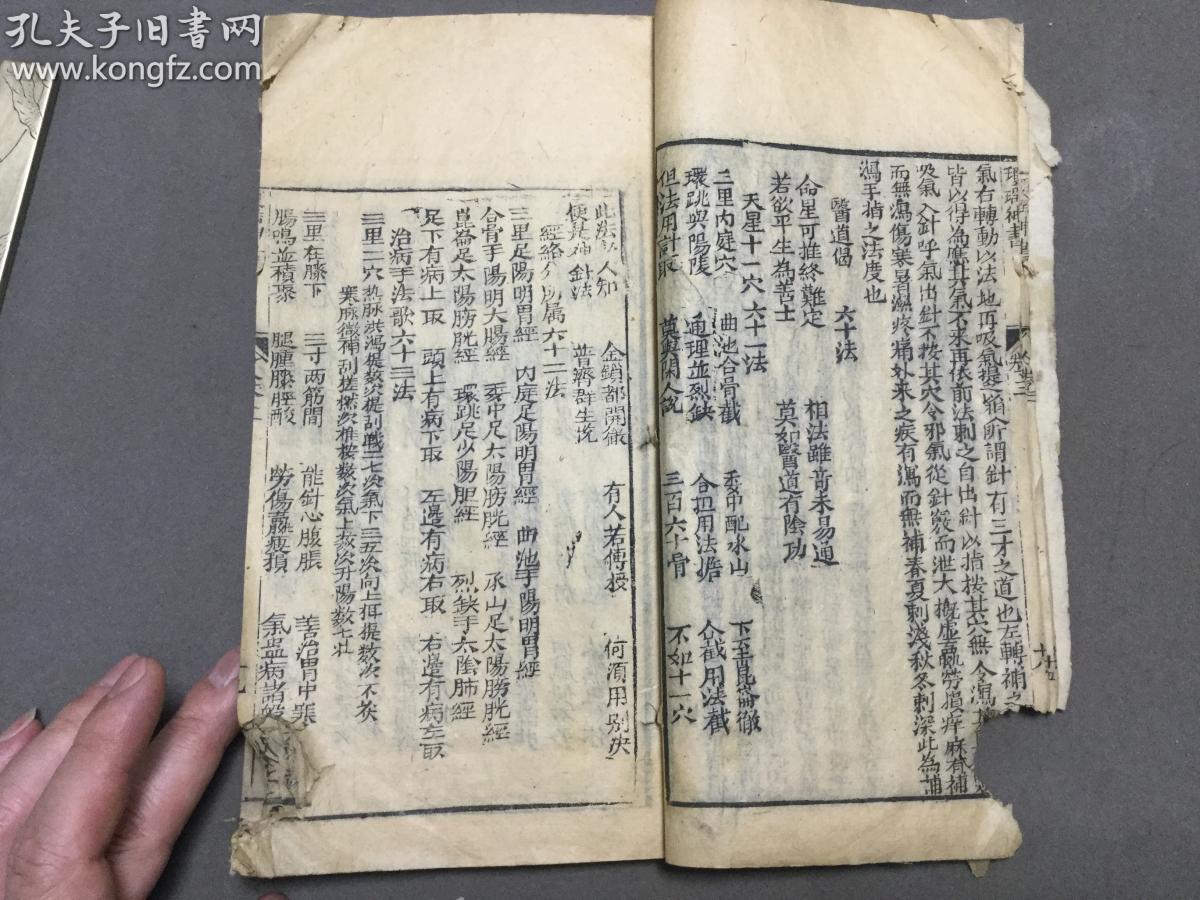 孔夫子旧书网
www.kongfz.com
氣右轉動以法地再吸氣提之
所謂針有三才之道也左轉補之
皆以得為應其氣不來再依前法刺之自出針以指按其穴無令瀉
吸氣入針呼氣出針不按其穴令邪氣從針竅而泄大概虛羸勞損痒麻者補
而無瀉傷寒暑濕疼痛外來之疾有瀉而無補春夏刺淺秋冬刺深此為補
瀉手指之法度也
醫道偈 六十法
命星可推終難定 相法雖奇未易通
若欲平生為善士 莫如醫道有陰功
天星十一穴六十一法
三里內庭穴 曲池合骨截 委中配承山 下至崑崙徹
環跳與陽陵 通理並列缺 合担用法擔 合截用法截
但法用計取 莫與閑人說 三百六十骨 不如十一穴
此法 人知 金鎖都開徹 有人若傳授 何須用別決
便是神針法 普濟群生說
經絡 所屬六十二法
三里足陽明胃經 內庭足陽明胃經 曲池手陽明胃經
合骨手陽明大腸經 委中足太陽膀胱經 承山足太陽膀胱經
崑崙足太陽膀胱經 環跳足少陽胆經 列缺手太陰肺經
足下有病上取 頭上有病下取 左邊有病右取 右邊有病左取
治病手法歌六十三法
三里二穴 熱脉洪瀉提数次提刮戰一七次氣下三五次向上再提数次不灸
寒脉微補刮搓 次推按数次氣上按次升陽数七壮
三里在膝下 三寸两筋間 能針心腹脹 善治胃中寒
腸鳴並積聚 腿腫膝脛酸 勞傷羸瘦損 氣蛊病諸般